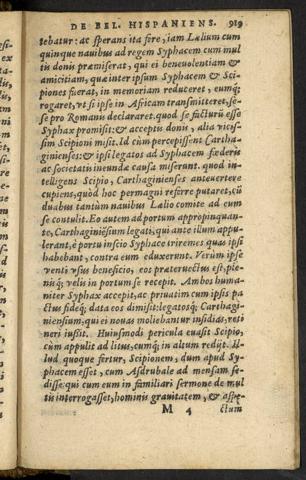 DE BEL. HISPANIENS. 919
tebatur: ac sperans ita fore, iam Lælium cum
quinque nauibus ad regem Syphacem cum mul
tis donis præmiserat, qui ei beneuolentiam &
amicitiam, quæ inter ipsum Syphacem & Sci-
piones fuerat, in memoriam reduceret, eumq;
rogaret, ut si ipse in Africam transmitteret, se-
se pro Romanis declararet. quod se facturū esse
Syphax promisit: & acceptis donis, alia vicis-
sim Scipioni misit. Id cùm percepissent Cartha-
ginienses: & ipsi legatos ad Syphacem fœderis
ac societatis ineundæ causa miserunt. quod in-
telligens Scipio, Carthaginienses anteuertere
cupiens, quòd hoc permagni referre putaret, cū
duabus tantùm nauibus Lælio comite ad eum
se contulit. Eo autem ad portum appropinquan-
te, Carthaginiēsium legati, qui ante illum appu-
lerant, è portu inscio Syphace triremes quas ipsi
habebant, contra eum eduxerunt. Verùm ipse
venti vsus beneficio, eos præteruectus est, ple-
nisq; velis in portum se recepit. Ambos huma-
niter Syphax accepit, ac priuatim cum ipsis pa
ctus fideq; data eos dimisit: legatosq; Carthagi-
niensium, qui ei nouas moliebantur insidias, reti
neri iussit. Huiusmodi pericula euasit Scipio,
cùm appulit ad litus, cumq; in altum redijt. Il-
lud quoque fertur, Scipionem, dum apud Sy-
phacem esset, cum Asdrubale ad mensam se-
disse: qui cum eum in familiari sermone de mul
tis interrogasset, hominis grauitatem, & aspe-
M 4 ctum